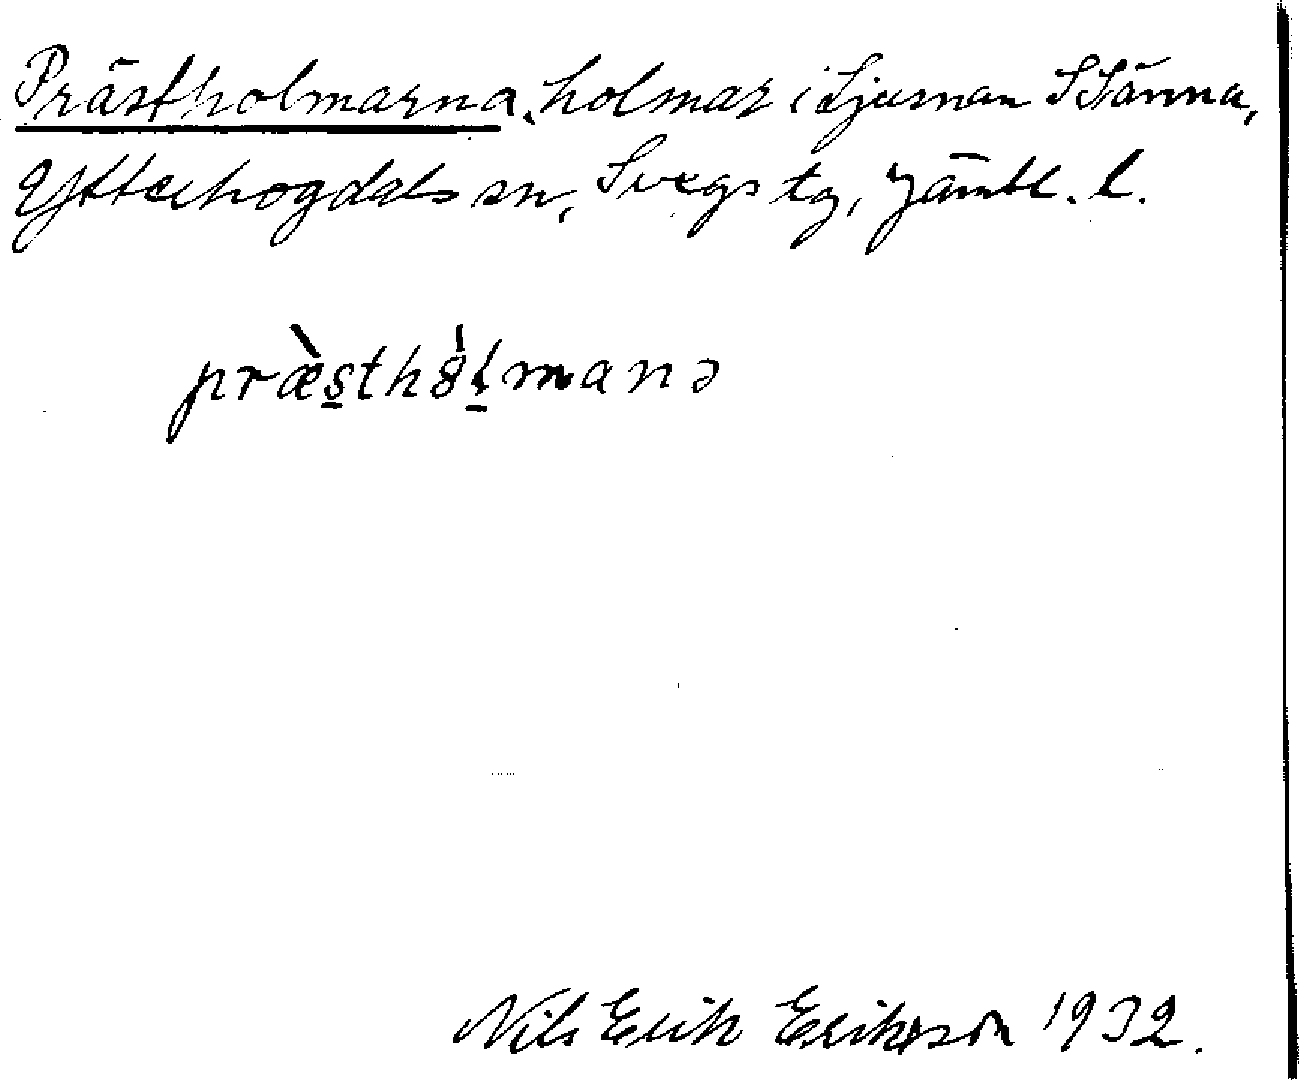 Prästholmarna, holmar i Ljusnan SSänna,
Ytterhogdals sn, Svegs tg, Jämtl. l.
præ̀s̠thòl̠manə
Nils Erik Erikson 1932.